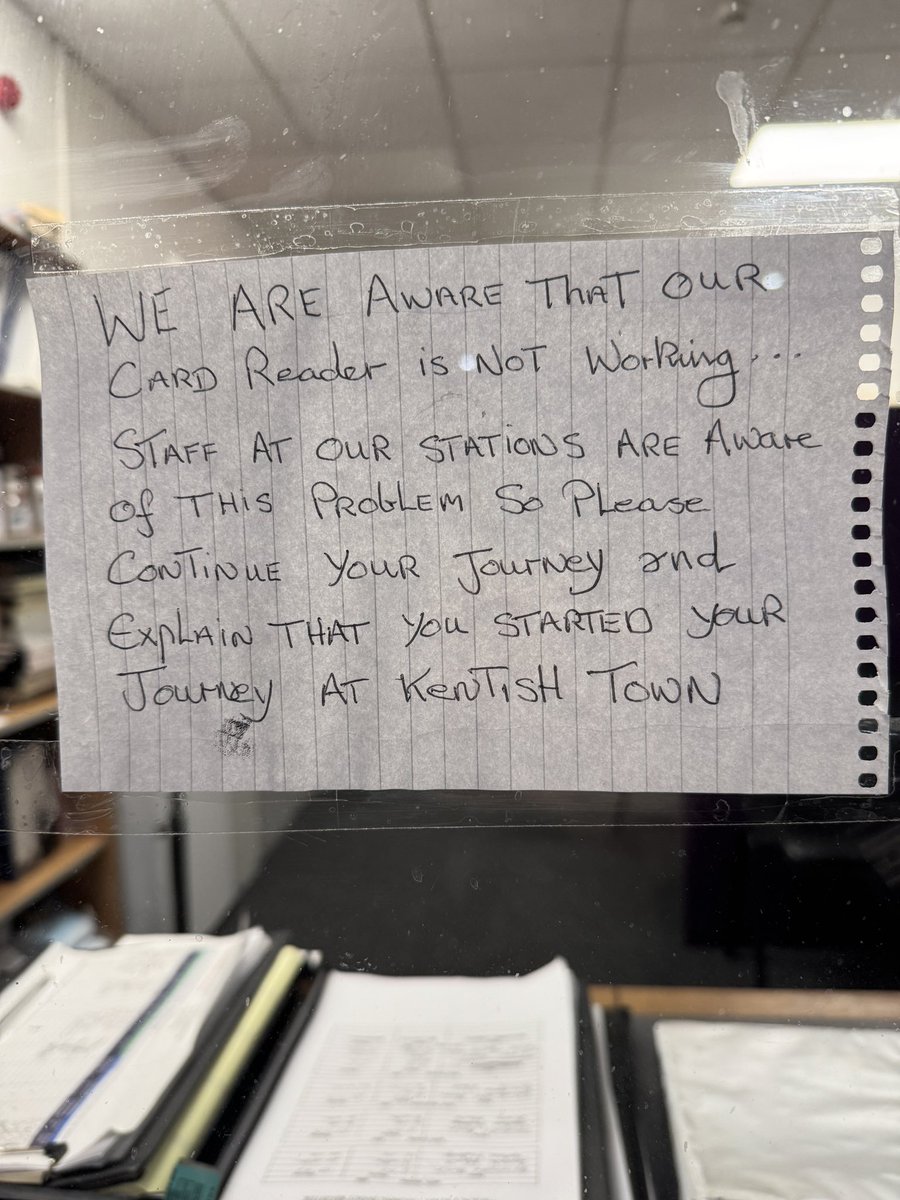 WE ARE AWARE ThAT OUR
CARD Reader is NOT Working...
STAFF AT OUR STATIONS ARE Aware
Of THiS PROBLEM So PLease
CONTINUE YOUR Journey and
ExplAiN THAT you STARTED YOUR
Journey AT KenTiSH TOWN